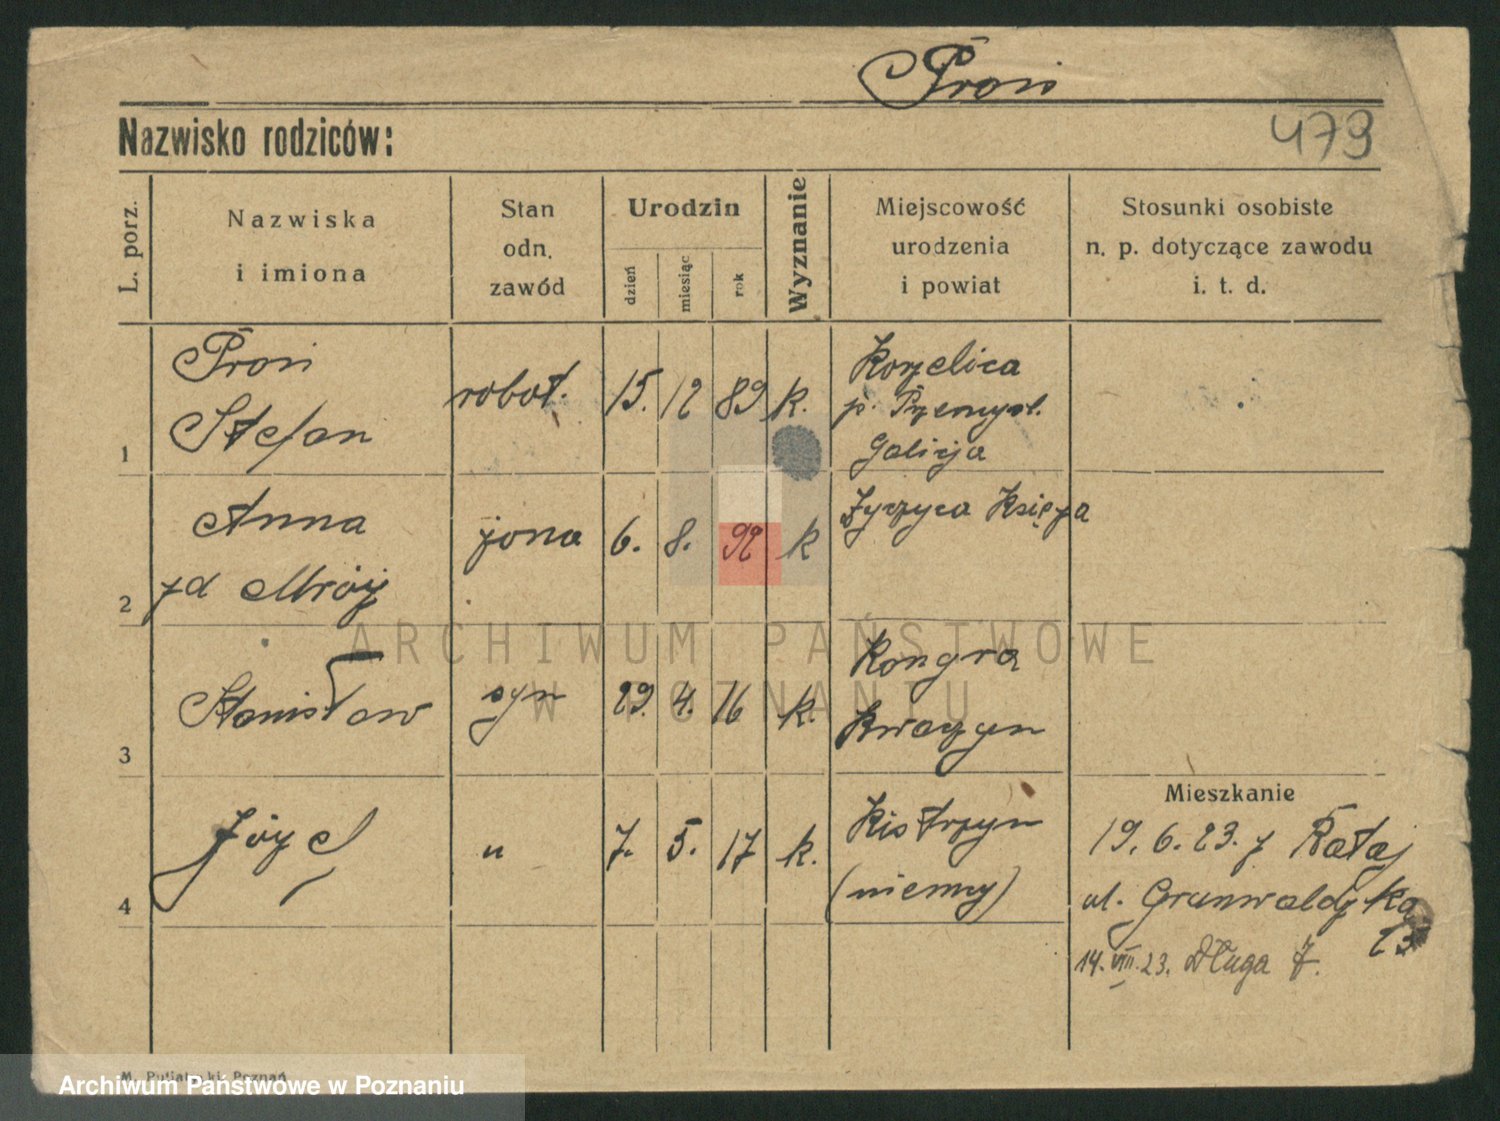 Proń
Nazwisko rodziców:
479
L. porz.
Nazwiska
i imiona
Stan
odn.
zawód
Urodzin
dzień
miesiąc
rok
Wyznanie
Miejscowość
urodzenia
i powiat
Stosunki osobiste
n. p. dotyczące zawodu
i. t. d.
1
Proń
Stefan
robot.
15. 12 89 k.
p.
Galicja
2
Anna
zd Mróz
żona
6. 8. 92 k
Księża
3
Stanisław
syn
29. 4. 16 k.
Kongra
4
Józef
"
7. 5. 17 k.
Kistrzyn
(niemcy)
Mieszkanie
19. 6. 23. z Rataj
ul. Grunwaldzka
23
14. VIII. 23. Długa 7.
ARCHIWUM PAŃSTWOWE
W POZNANIU
Archiwum Państwowe w Poznaniu